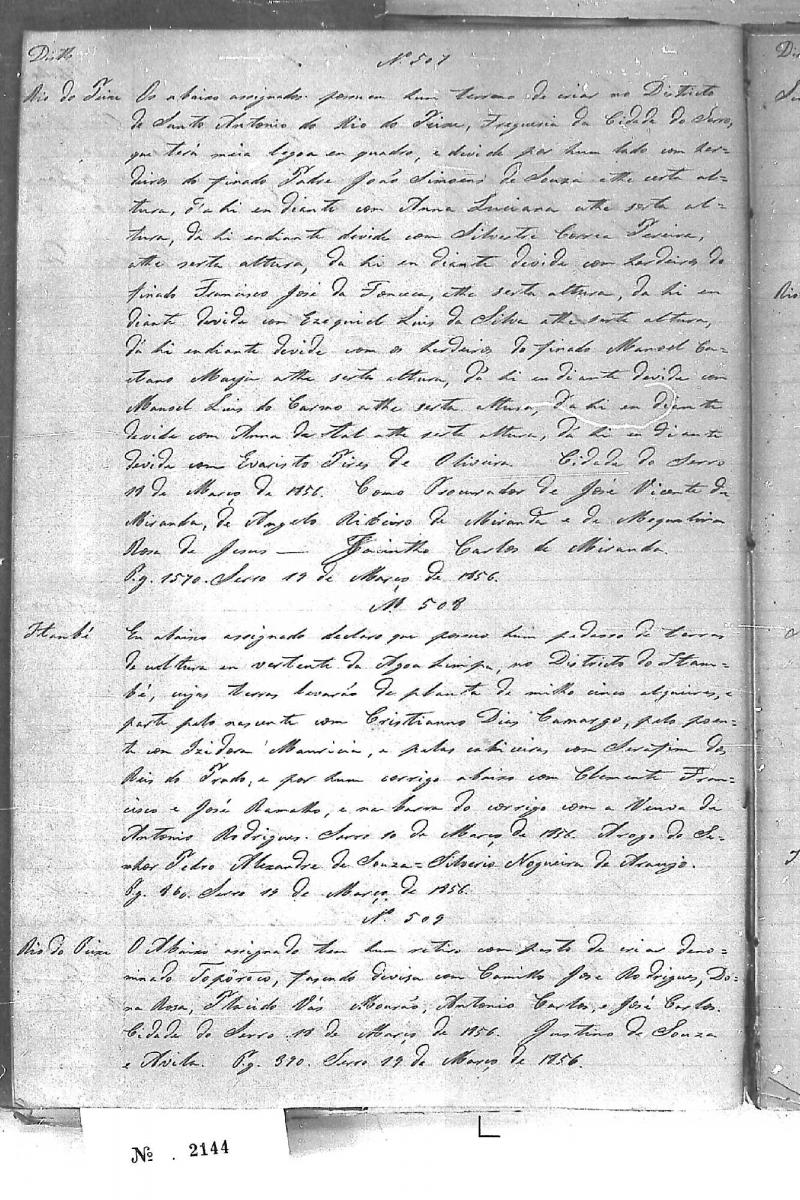 Distr.
Nº 507
Rio do Peixe Os abaixo assignados possuem hum terreno de criar no Districto
de Santo Antonio do Rio do Peixe, Freguesia da Cidade do Serro,
que terá meia legoa em quadro, e divide por hum lado com her-
deiros do finado Padre João Simoens de Souza athe certa al-
tura, d'ahi en diante com Anna Luciana athe serta al-
tura, dá hi endiante divide com Silvestre Correa Pereira,
athe serta altura, da hi en diante devida com herdeiros do
finado Francisco José da Fonceca, athe serta altura, da hi en
diante devida com Ezequiel Luis da Silva athe serta altura,
dá hi endiante devide com os herdeiros do finado Manoel Ca-
etano athe serta altura, dá hi en diante devida com
Manoel Luis do Carmo athe serta altura, d'a hi en diante
devida com Anna da athe serta altura, dá hi en diante
devida com Evaristo Pires de Oliveira. Cidade do Serro
19 de Março de 1856. Como Procurador de José Vicente de
Miranda, de Angelo Ribeiro de Miranda e de
Rosa de Jesus — Jacintho Carlos de Miranda.
Pg. 1570. Serro 19 de Março de 1856.
Nº 508
Itambé Eu abaixo assignado declaro que possuo hum pedasso de terras
de cultura en vertente da Agoa Limpa, no Districto do Itam-
bé, cujas terras levarão de planta de milho cinco alqueires, e
parte pelo nascente com Cristianno Dias Camargo, pelo poen-
te con Izidora Mauricia, e pelas cabiceiras com Serafim dos
Reis do Prado, e por hum corrigo abaixo com Clemente Fran-
cisco e José Ramalho, e na barra do corrigo com a Viuva de
Antonio Rodrigues. Serro 10 de Março de 1856. Arogo do Se-
nhor Pedro Alexandre de Souza = Silverio Nogueira de Araujo.
Pg. 960. Serro 19 de Março de 1856.
Nº 509
Rio do Peixe O Abaixo assignado tem hum retiro com pasto de criar deno-
mnado Topôroco, fasendo divisa com Camillo Jose Rodrigues, Do-
na Rosa, Placido Vás Mourão, Antonio Carlos, e José Carlos.
Cidade do Serro 19 de Março de 1856. Justino de Souza
e Avila. Pg. 390. Serro 19 de Março de 1856.
Nº . 2144